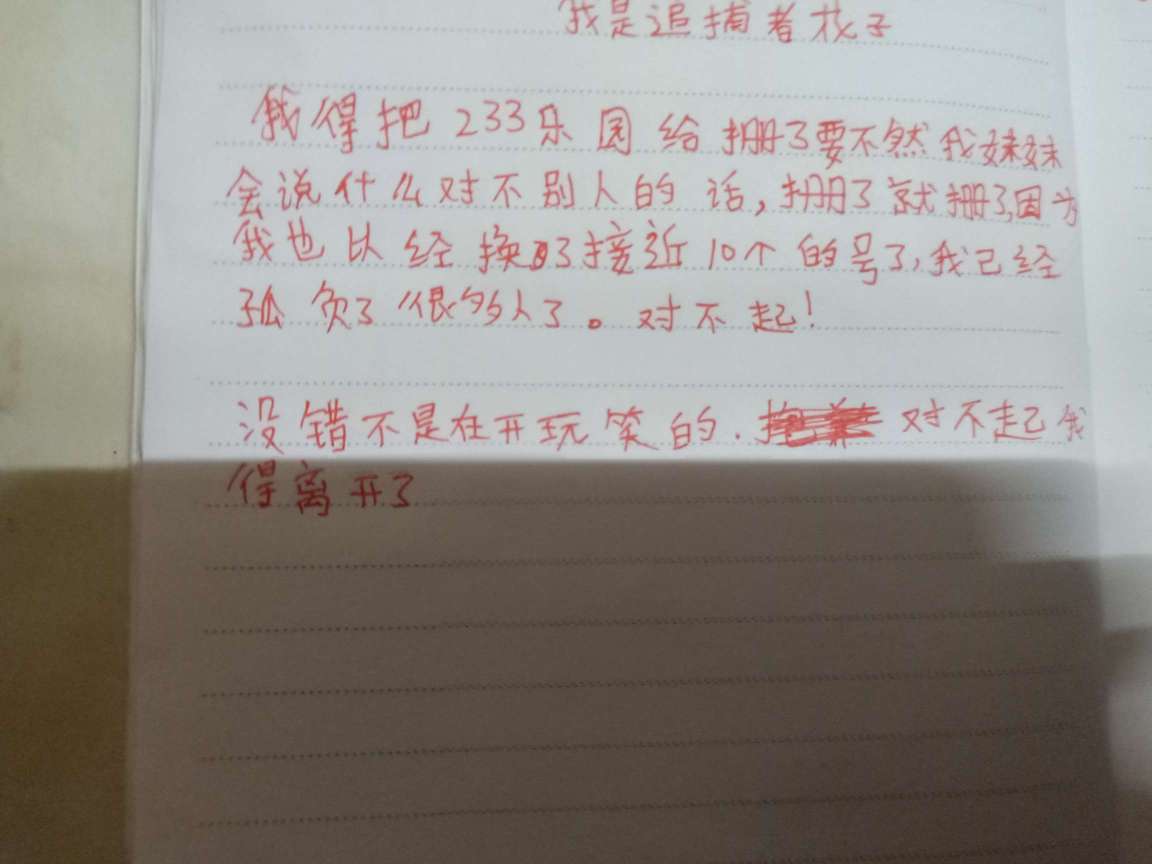 我是追捕者找子
我得把 233乐园给捌了要不然我妹妹
会说什么对不别人的话，捌了就捌了,因为
我也以经换了接近10个的号了,我已经
孤负了很多人了。对不起!
没错不是在开玩笑的. 对不起我
得离开了